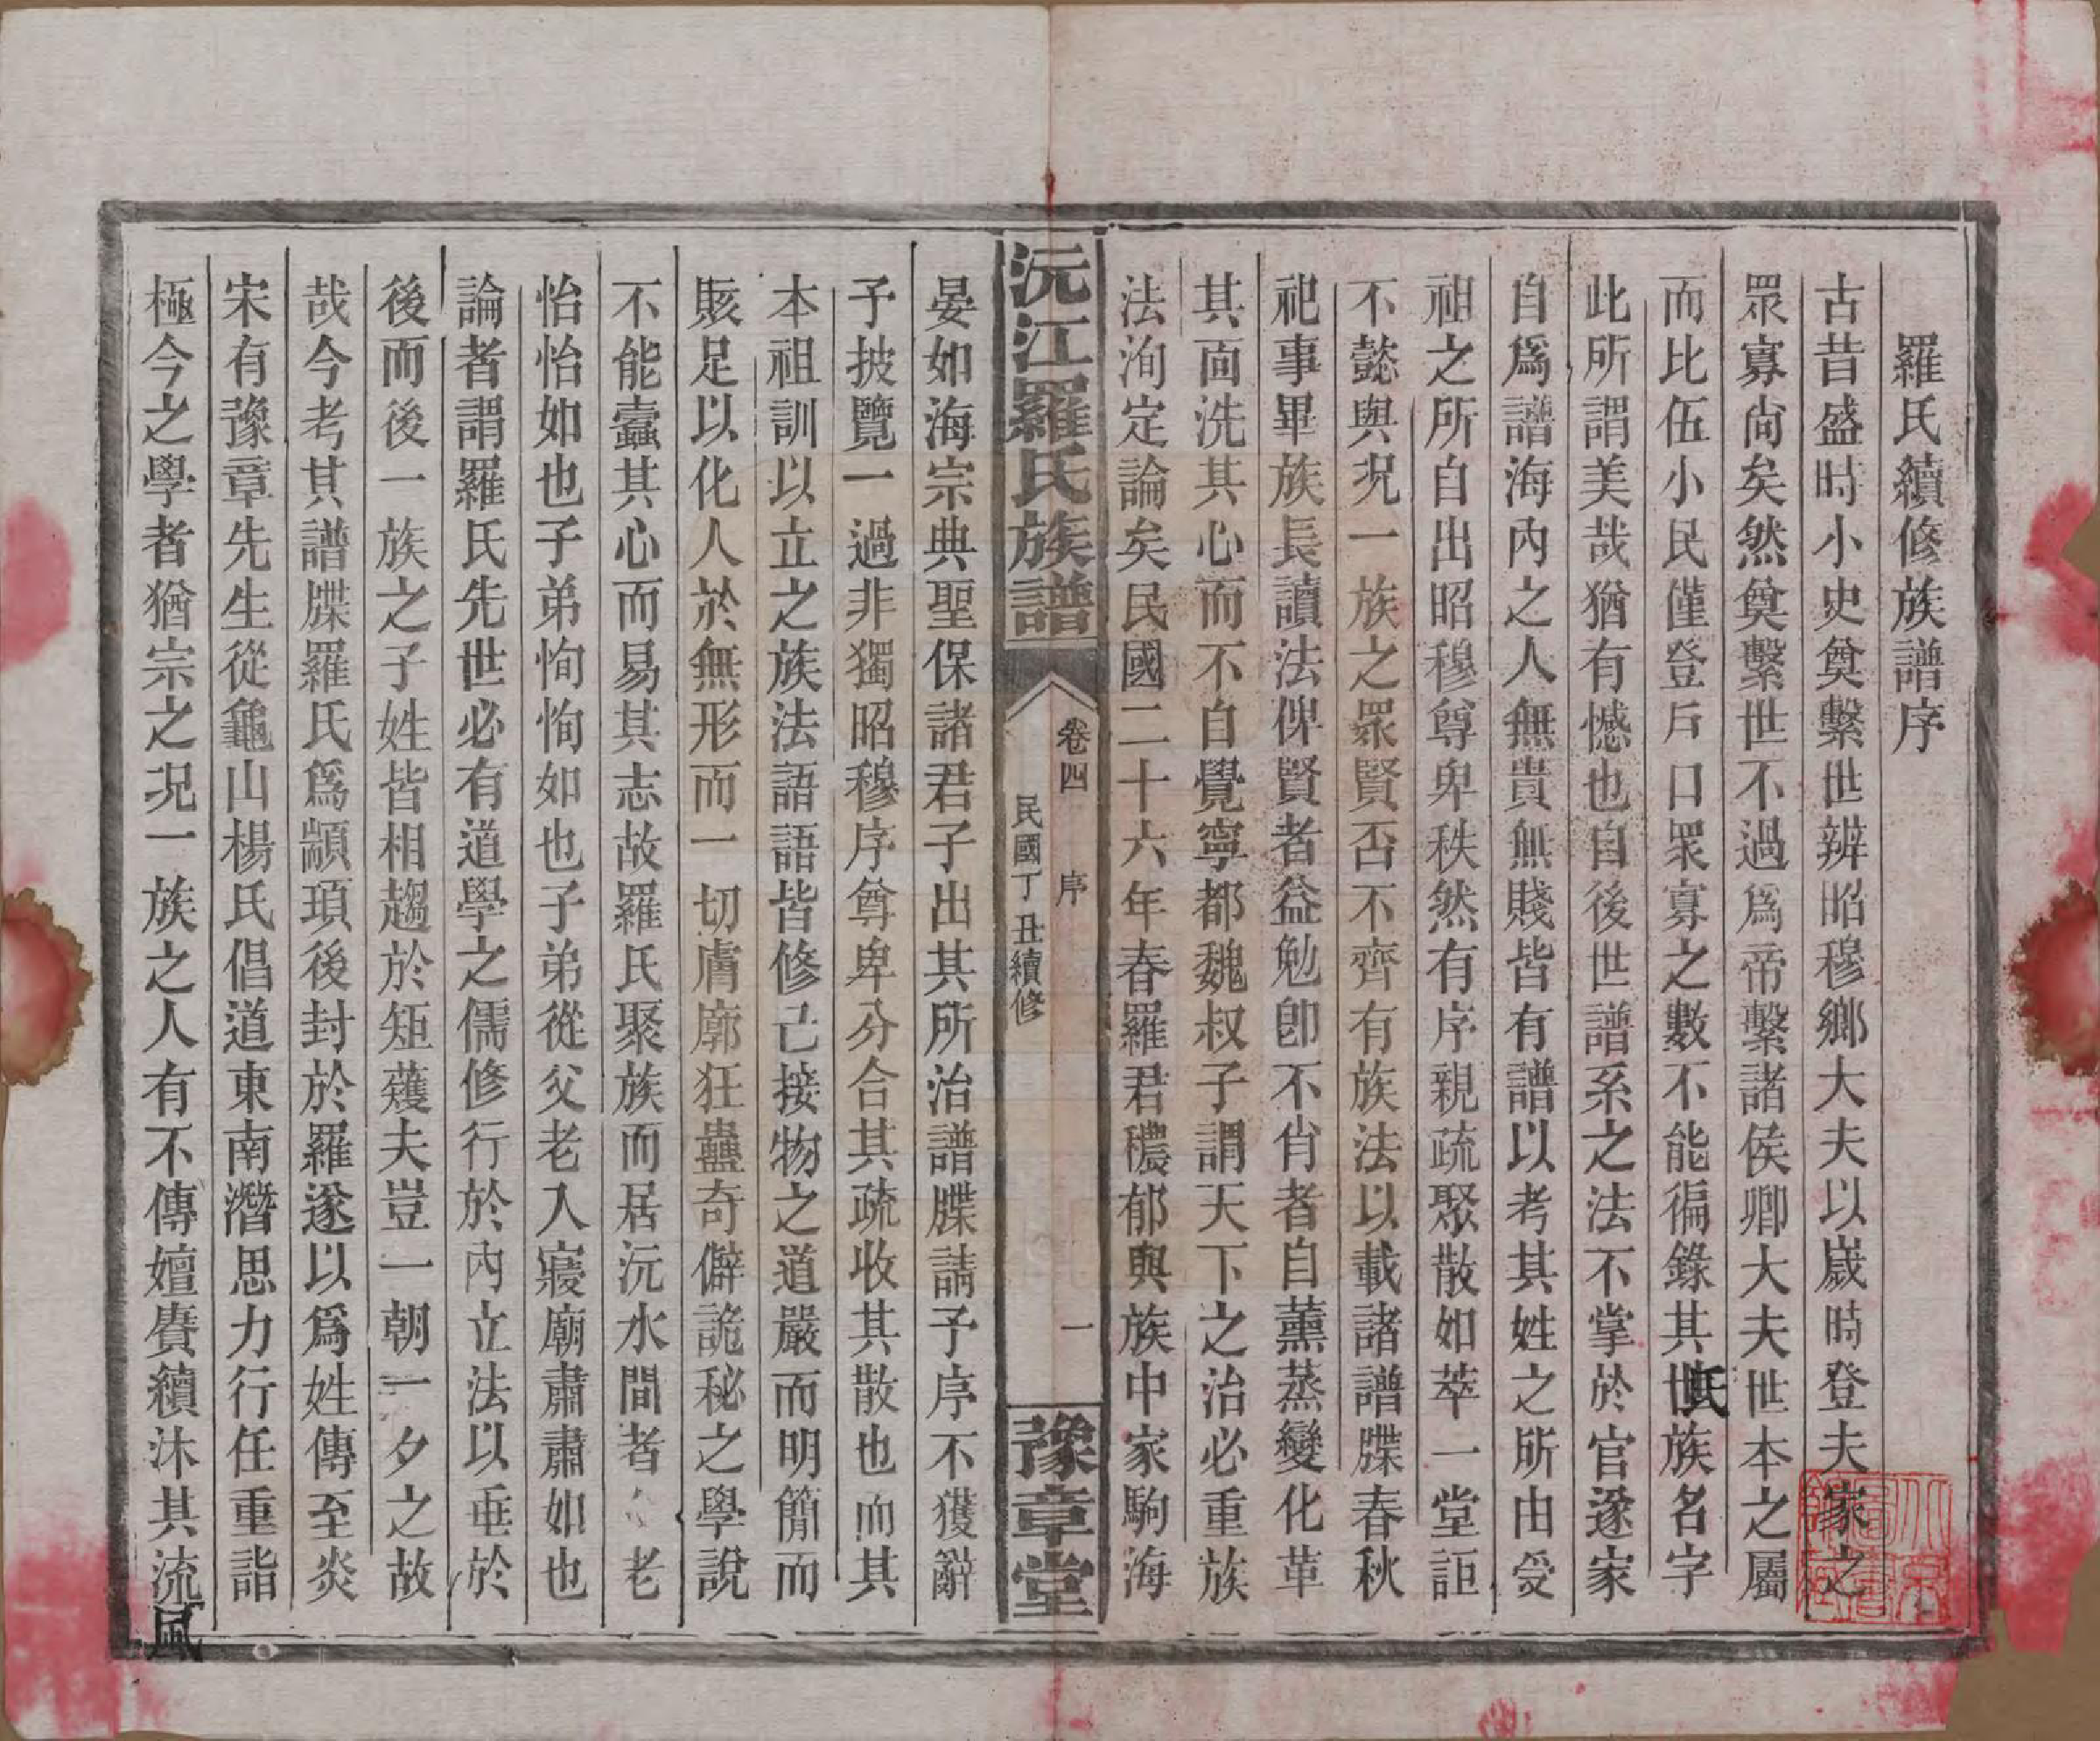 羅氏續修族譜序
古昔盛時小史奠繫世辨昭穆鄉大夫以歲時登夫家之
眾寡尙矣然奠繫世不過爲帝繫諸侯卿大夫世本之屬
而比伍小民僅登戶口眾寡之數不能徧錄其世氏族名字
此所謂美哉猶有憾也自後世譜系之法不掌於官遂家
自爲譜海內之人無貴無賤皆有譜以考其姓之所由受
祖之所自出昭穆尊卑秩然有序親疏聚散如萃一堂詎
不懿與況一族之眾賢否不齊有族法以載諸譜牒春秋
祀事畢族長讀法俾賢者益勉卽不肖者自薰蒸變化革
其面洗其心而不自覺寧都魏叔子謂天下之治必重族
法洵定論矣民國二十六年春羅君穠郁與族中家駒海
沅江羅氏族譜
卷四 序 一
民國丁丑續修
豫章堂
晏如海宗典聖保諸君子出其所治譜牒請予序不獲辭
予披覽一過非獨昭穆序尊卑分合其疏收其散也而其
本祖訓以立之族法語語皆修己接物之道嚴而明簡而
賅足以化人於無形而一切膚廓狂蠱奇僻詭秘之學說
不能蠹其心而易其志故羅氏聚族而居沅水間者父老
怡怡如也子弟恂恂如也子弟從父老入寢廟肅肅如也
論者謂羅氏先世必有道學之儒修行於內立法以垂於
後而後一族之子姓皆相趨於矩蒦夫豈一朝一夕之故
哉今考其譜牒羅氏爲顓頊後封於羅遂以爲姓傳至炎
宋有豫章先生從龜山楊氏倡道東南潛思力行任重詣
極今之學者猶宗之況一族之人有不傳嬗賡續沐其流風